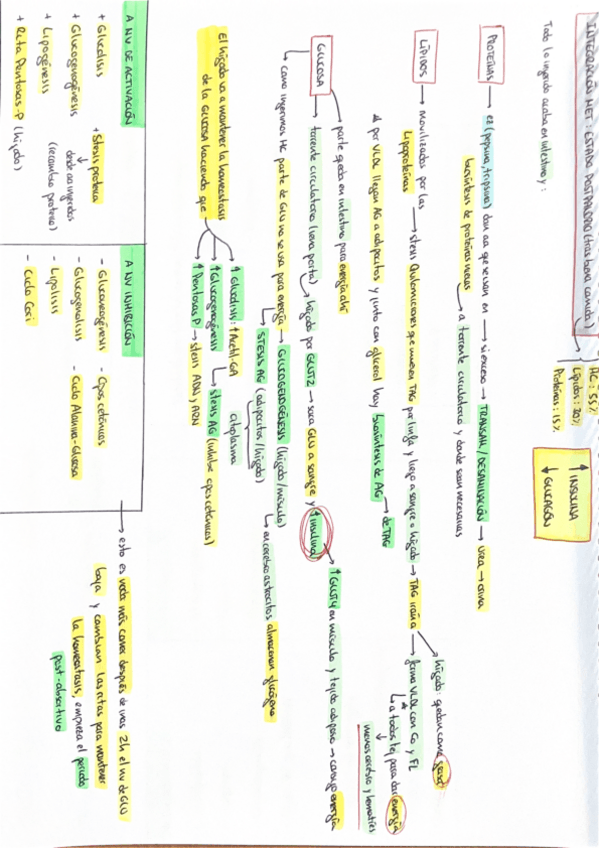 INTEGRACIÓN MET: ESTADO POSTPANDRIO (tras buena comida)
HC: 55%
Lípidos: 30%
Proteínas: 15%
↑ INSULINA
↓ GLUCAGÓN
Todo lo ingerido acaba en intestino y:
PROTEÍNAS → ez (pepsina, tripsina) dan aa que se usan en → si exceso → TRANSAM / DESAMINACIÓN → urea → orina
biosíntesis de proteínas nuevas → a torrente circulatorio y donde sean necesarias
LÍPIDOS → movilizados por las → stesis Quilomicrones que mueven TAG por linfa y llega a sangre e hígado → TAG irán a
Lipoproteínas
hígado: quedan como grasa
forma VLDL con Co y FL
→ a todos tej para dar energía
menos cerebro y hematíes
por VLDL llegan AG a adipocitos y junto con glicerol hay biosíntesis de AG → de TAG
GLUCOSA → parte queda en intestino para energía ahí
→ torrente circulatorio (vena porta) → hígado por GLUT2 → saca GLU a sangre y ↑ insulina → ↑ GLUT4 en músculo y tejido adiposo → consigo energía
→ como ingerimos HC parte de GLU no se usa para energía → GLUCOGENOGÉNESIS (hígado/músculo) → en cerebro astrocitos almacenan glucógeno
STESIS AG (adipocitos/hígado)
El hígado va a mantener la homeostasis
de la GLUCOSA haciendo que
↑ Glucolisis: ↑ Acetil-CoA
citoplasma
↑ Glucogenogénesis → stesis AG (inhibe cpos cetónicos)
↑ Pentosas P → stesis ADN y ARN
A NV DE ACTIVACIÓN
+ Glucolisis + Stesis proteica
+ Glucogenogénesis desde aa ingeridos
+ Lipogénesis (recambio proteico)
+ Ruta Pentosas-P (hígado)
A NV INHIBICIÓN
- Gluconeogénesis - Cpos cetónicos
- Glucogenolisis - Ciclo Alanina-Glucosa
- Lipolisis
- Ciclo Cori
→ esto es nada más comer después de unas 2h el nv de GLU
baja y cambian las rutas para mantener
la homeostasis, empieza el periodo
post-absortivo